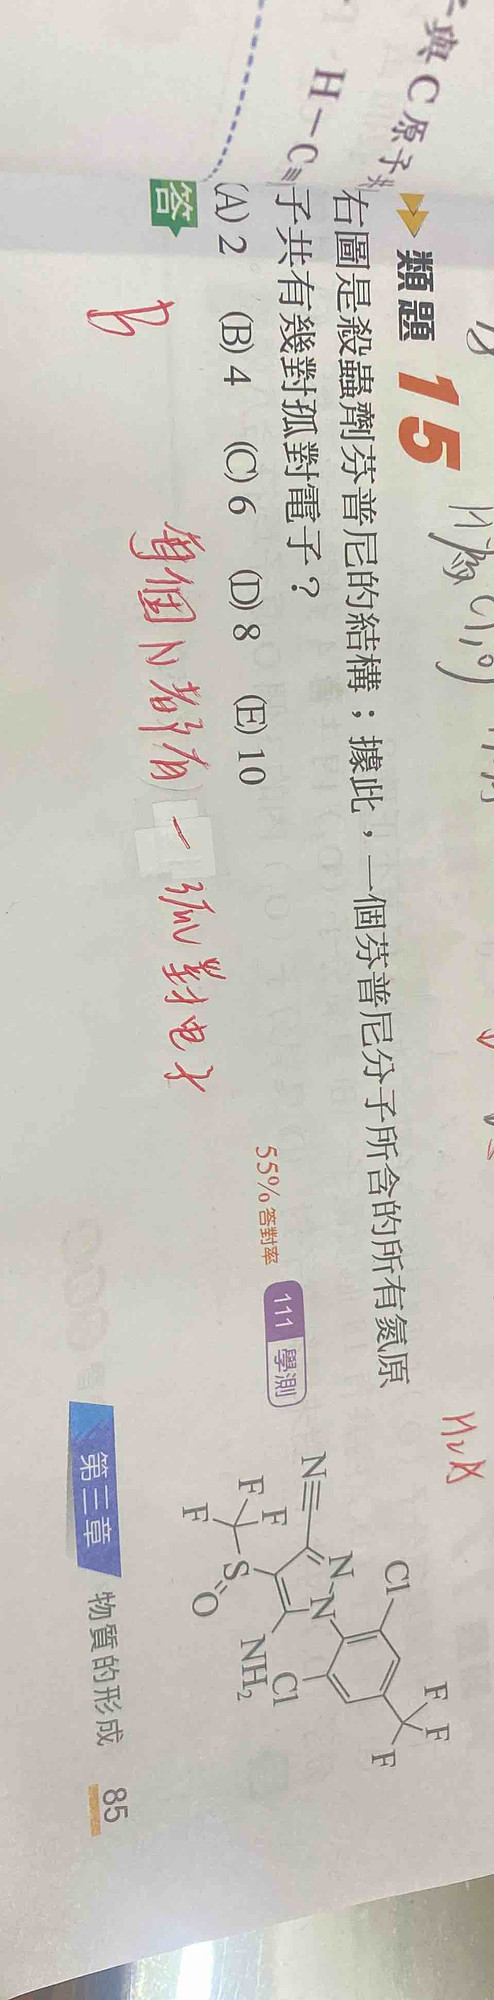 與C原子
H-C≡
類題 15
右圖是殺蟲劑芬普尼的結構；據此，一個芬普尼分子所含的所有氮原
子共有幾對孤對電子？
(A) 2 (B) 4 (C) 6 (D) 8 (E) 10
55%答對率 111 學測
答 B
每個N都有一孤對电子
Cl
F
F
F
N≡
N
N
F
F
F
S
O
NH₂
Cl
第三章 物質的形成 85